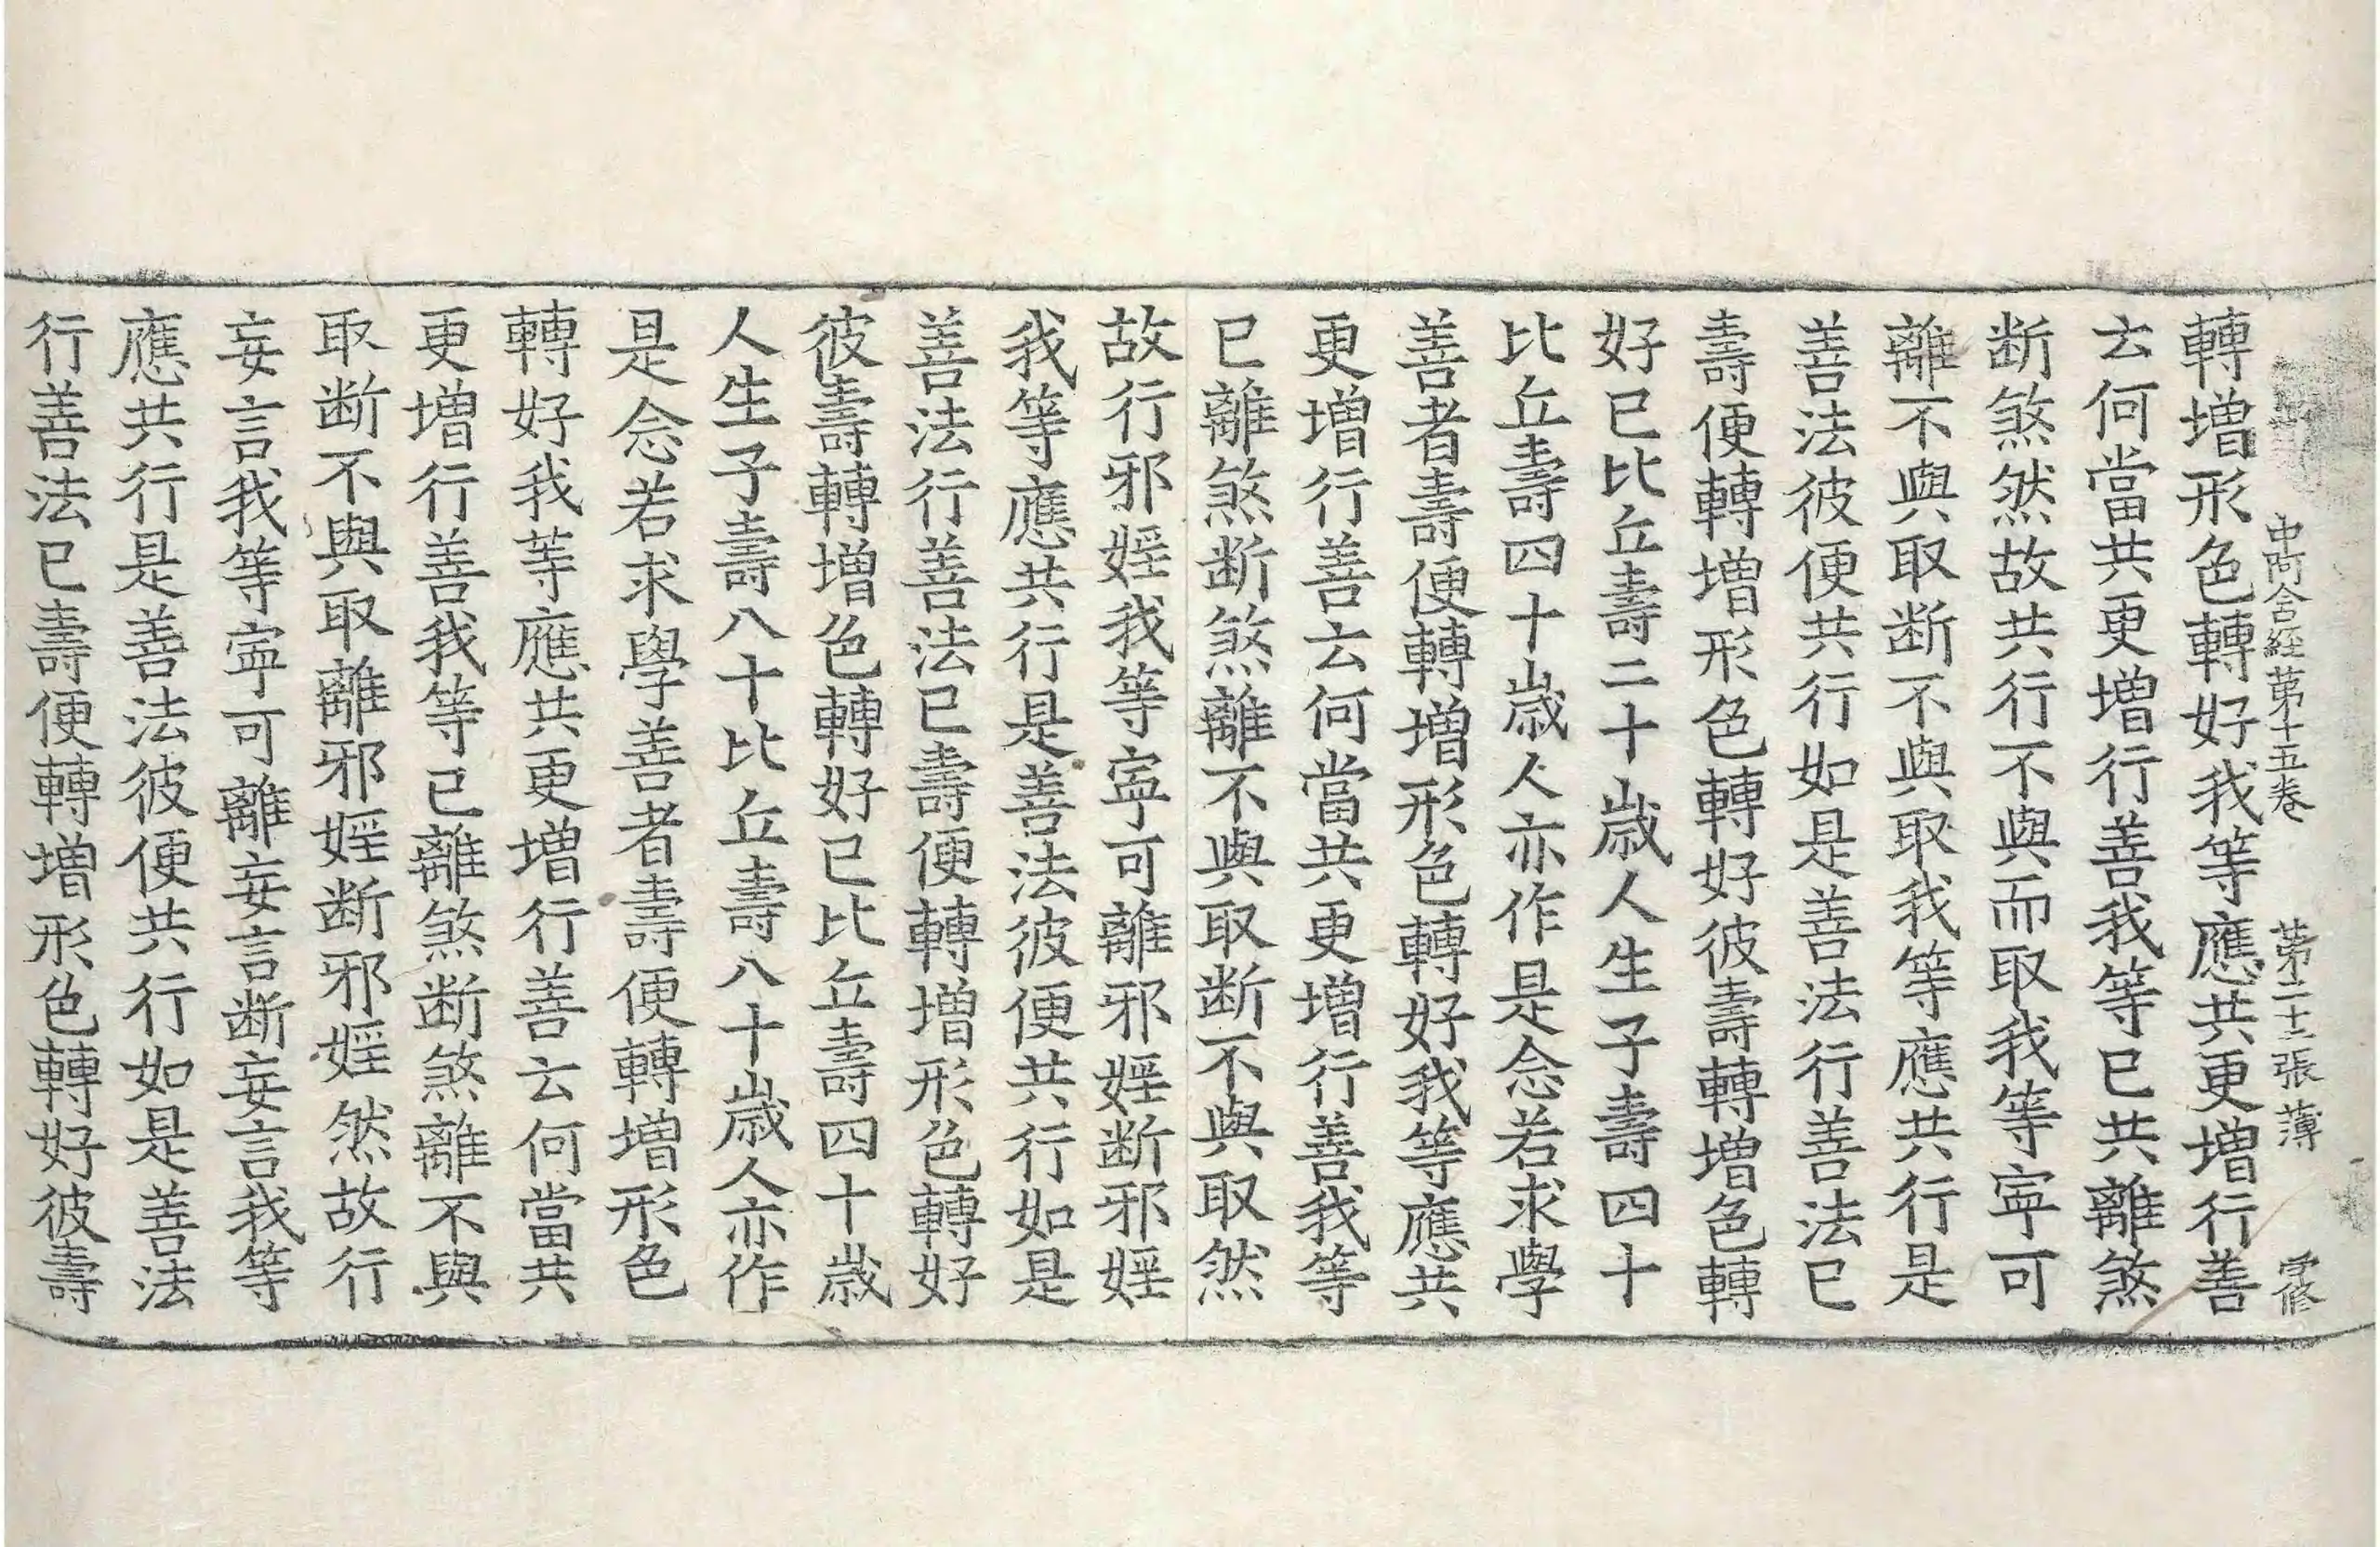 中阿含經第十五卷 第二十二張 薄
轉增形色轉好我等應共更增行善
云何當共更增行善我等已共離煞
断煞然故共行不與而取我等寧可
離不與取断不與取我等應共行是
善法彼便共行如是善法行善法已
壽便轉增形色轉好彼壽轉增色轉
好已比丘壽二十歲人生子壽四十
比丘壽四十歲人亦作是念若求學
善者壽便轉增形色轉好我等應共
更增行善云何當共更增行善我等
已離煞断煞離不與取断不與取然
故行邪婬我等寧可離邪婬断邪婬
我等應共行是善法彼便共行如是
善法行善法已壽便轉增形色轉好
彼壽轉增色轉好已比丘壽四十歲
人生子壽八十比丘壽八十歲人亦作
是念若求學善者壽便轉增形色
轉好我等應共更增行善云何當共
更增行善我等已離煞断煞離不與
取断不與取離邪婬断邪婬然故行
妄言我等寧可離妄言断妄言我等
應共行是善法彼便共行如是善法
行善法已壽便轉增形色轉好彼壽